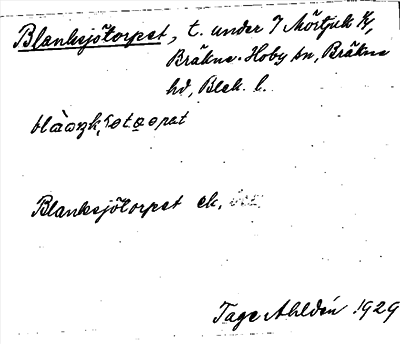 Blanksjötorpet, t. under 7 Mörtjuk
Bräkne-Hoby sn, Bräkne
hd, Blek. l.
Blanksjötorpet ek.
Tage Ahldén 1929